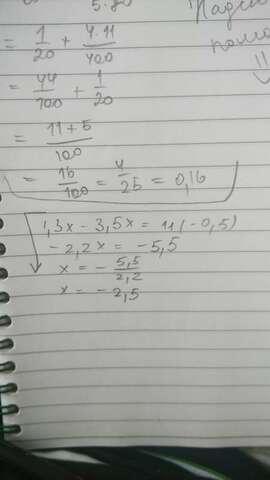 5.80
= 1/20 + 4·11/400
= 44/100 + 1/20
= 11+5/100
= 16/100 = 4/25 = 0,16
1,3x - 3,5x = 11(-0,5)
-2,2x = -5,5
x = - 5,5/2,2
x = -2,5